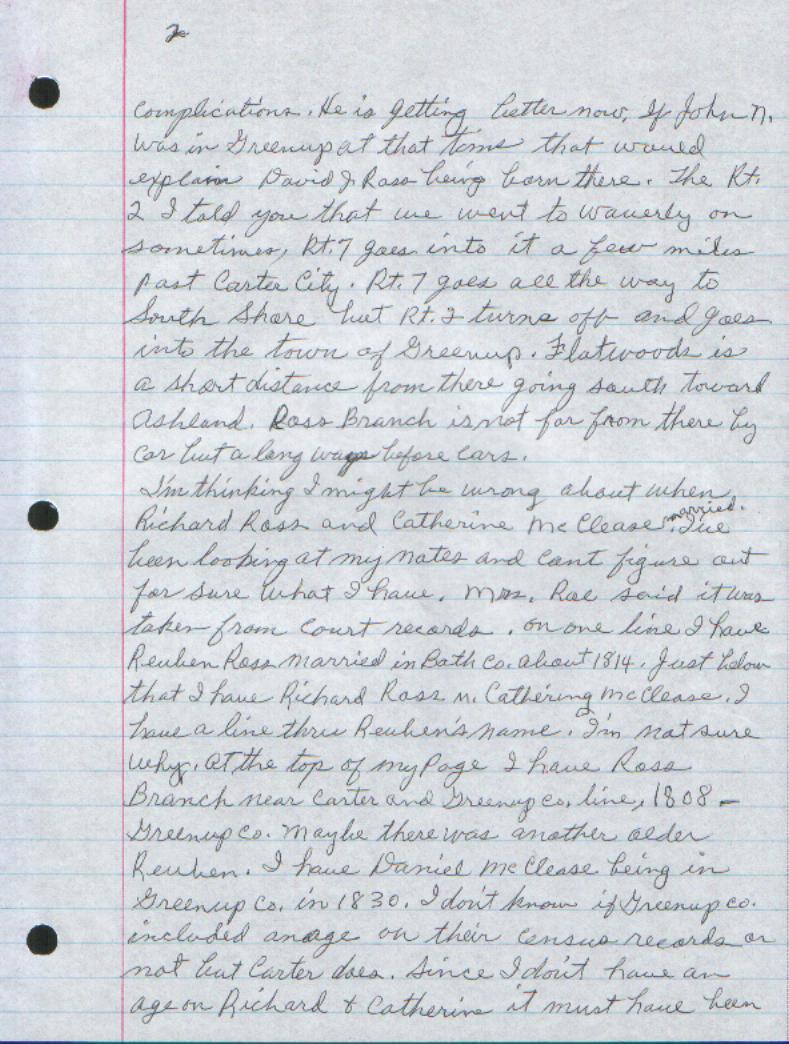 2
complications. He is getting better now. If John N.
was in Greenup at that time that would
explain David J Ross being born there. The Rt.
2 I told you that we went to Waverly on
sometimes, Rt. 7 goes into it a few miles
past Carter City. Rt. 7 goes all the way to
South Shore but Rt. 2 turns off and goes
into the town of Greenup. Flatwoods is
a short distance from there going south toward
Ashland. Ross Branch is not far from there by
car but a long ways before cars.
I'm thinking I might be wrong about when
Richard Ross and Catherine McClease married. I've
been looking at my notes and cant figure out
for sure what I have. Mrs. Roe said it was
taken from court records. On one line I have
Reuben Ross married in Bath Co. about 1814. Just below
that I have Richard Ross m. Cathering McClease. I
have a line thru Reuben's name. I'm not sure
why. At the top of my page I have Ross
Branch near Carter and Greenup co. line, 1808 -
Greenup co. Maybe there was another older
Reuben. I have Daniel McClease being in
Greenup Co. in 1830. I don't know if Greenup co.
included an age on their census records or
not but Carter does. Since I don't have an
age on Richard & Catherine it must have been